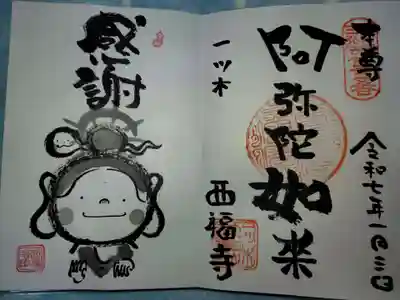 本尊
令和七年一月三日
阿弥陀如来
一ツ木
西福寺
感謝